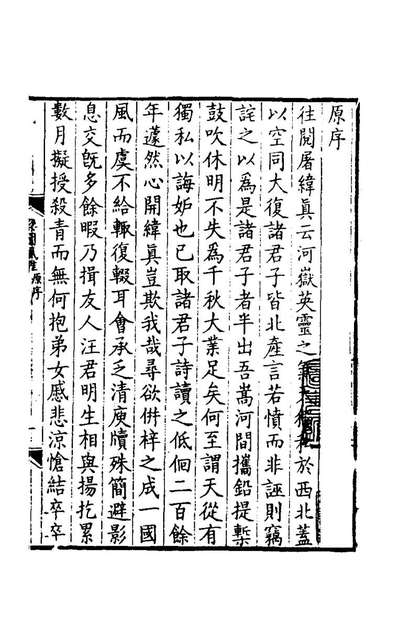 原序
往閱屠緯真云河嶽英靈之於西北蓋
以空同大復諸君子皆北產言若憤而非誣則竊
詫之以為是諸君子者半出吾嵩河間攜鉛提槧
鼓吹休明不失為千秋大業足矣何至謂天從有
獨私以誨妬也已取諸君子詩讀之低佪二百餘
年蘧然心開緯真豈欺我哉尋欲併梓之成一國
風而虞不給輙復輟耳會承乏清庾牘殊簡避影
息交旣多餘暇乃揖友人汪君明生相與揚扢累
數月擬授殺青而無何抱弟女感悲涼愴結卒卒
原序